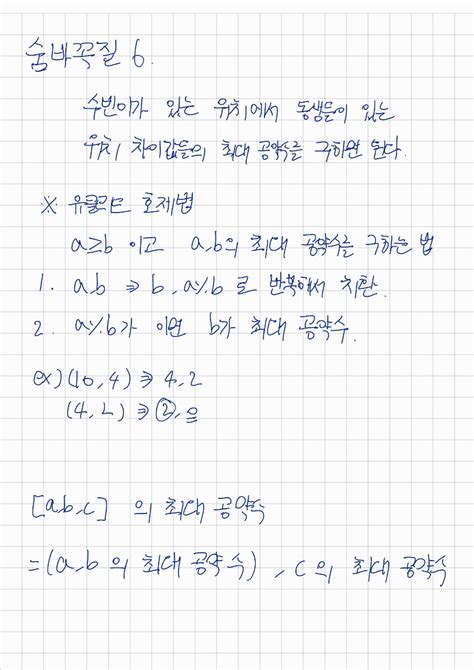 숨바꼭질 6.
수빈이가 있는 위치에서 동생들이 있는
위치 차이값들의 최대 공약수를 구하면 된다.
※ 유클리드 호제법
a≥b 이고 a,b의 최대 공약수를 구하는 법
1. a,b ⇒ b, a%b 로 반복해서 치환.
2. a%b가 이면 b가 최대 공약수.
ex) (10, 4) ⇒ 4, 2
(4, 2) ⇒ ②, 0
[a,b,c] 의 최대 공약수
= (a,b 의 최대 공약수), c의 최대 공약수